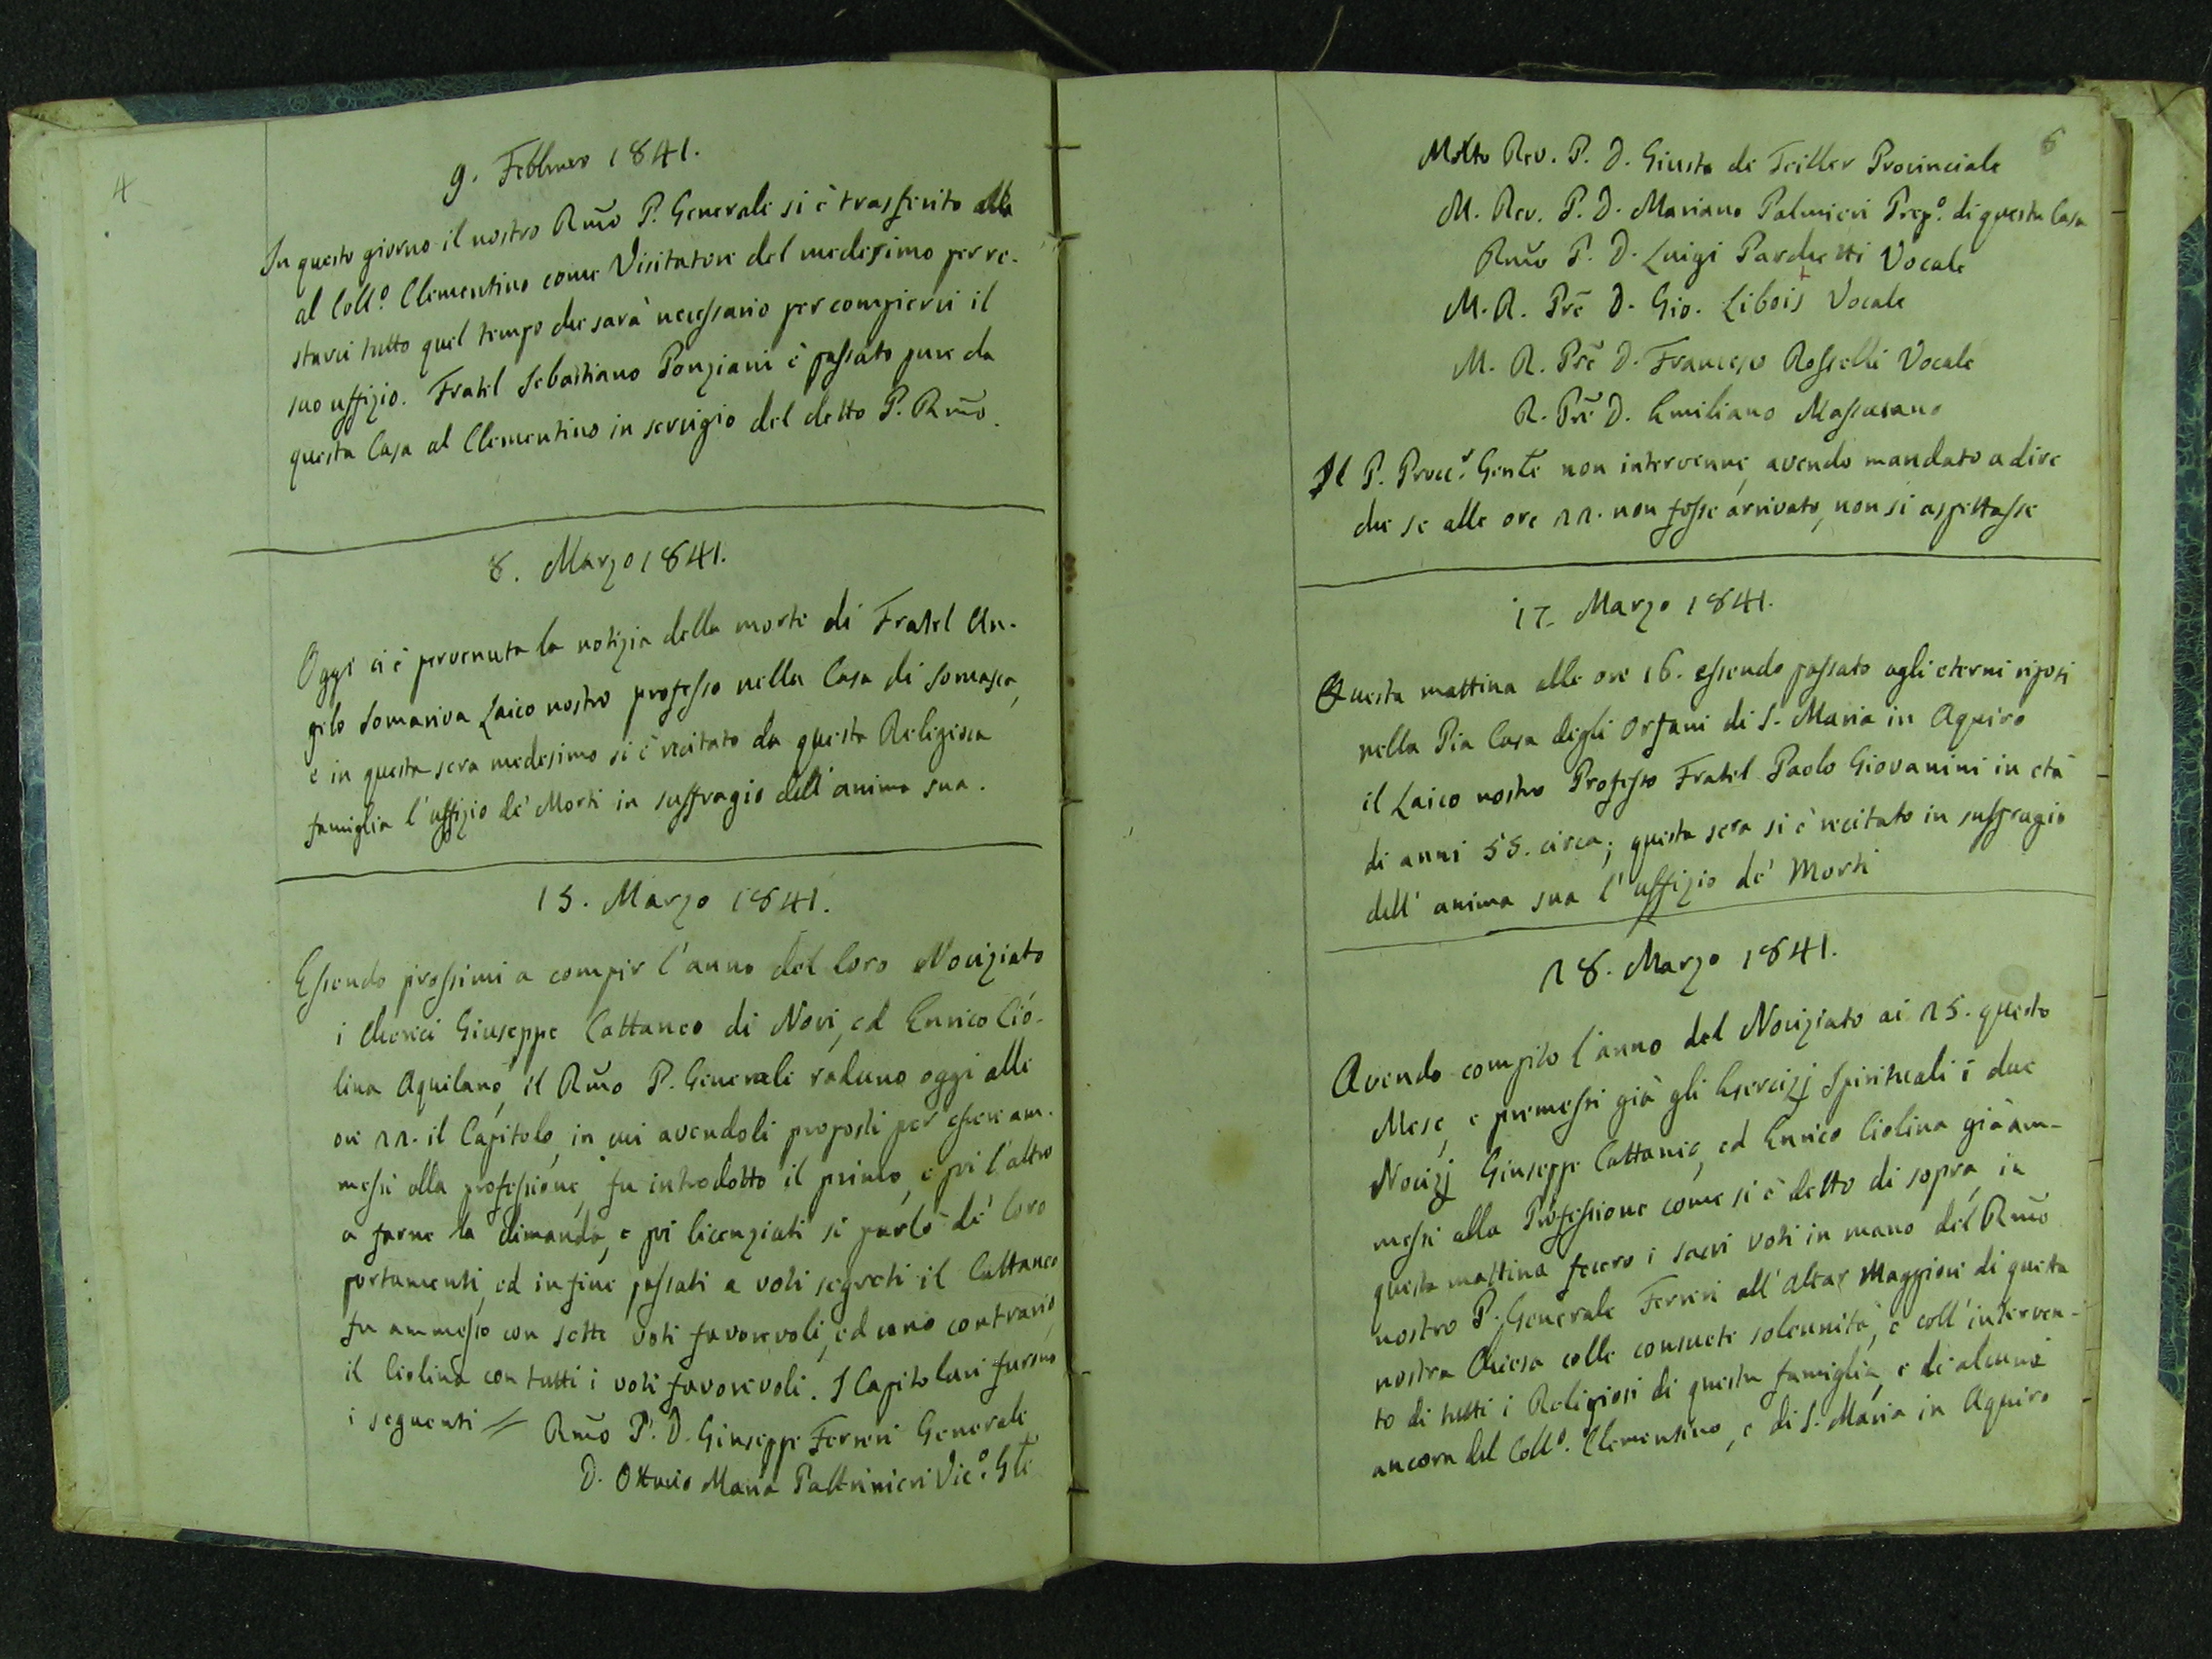 4
9. Febbraro 1841.
In questo giorno il nostro Rm̃o P. Generale si è trasferito alla
al Coll.º Clementino come Visitatore del medesimo per re-
starvi tutto quel tempo che sarà necessario per compiervi il
suo uffizio. Fratel Sebastiano Ponziani è passato pure da
questa Casa al Clementino in servigio del detto P. Rm̃o.
8. Marzo 1841.
Oggi ci è pervenuta la notizia della morte di Fratel An-
gelo Somariva Laico nostro professo nella Casa di Somasca,
e in questa sera medesimo si è recitato da questa Religiosa
famiglia l'uffizio de' Morti in suffragio dell'anima sua.
15. Marzo 1841.
Essendo prossimi a compir l'anno del loro Noviziato
i Cherici Giuseppe Cattaneo di Novi, ed Enrico Cio-
lina Aquilano, il Rm̃o P. Generale radunò oggi alle
ore 22. il Capitolo, in cui avendoli proposti per essere am-
messi alla professione, fu introdotto il primo, e poi l'altro
a farne la dimanda, e poi licenziati si parlò de' loro
portamenti, ed in fine passati a voti segreti il Cattaneo
fu ammesso con sette voti favorevoli, ed uno contrario,
il Ciolina con tutti i voti favorevoli. I Capitolari furono
i seguenti = Rm̃o P. D. Giuseppe Ferreri Generale
D. Ottavio Maria Paltrinieri Vic.º Gle
6
Molto Rev. P. D. Giusto de Teiller Provinciale
M. Rev. P. D. Mariano Palmieri Prep.º di questa Casa
Rm̃o P. D. Luigi Parchetti Vocale
M. R. Prẽ D. Gio. Libois Vocale
M. R. Prẽ D. Francesco Rosselli Vocale
R. Prẽ D. Emiliano Massusano
Il P. Procr. Genle non intervenne, avendo mandato a dire
che se alle ore 22. non fosse arrivato, non si aspettasse
17. Marzo 1841.
Questa mattina alle ore 16. essendo passato agli eterni riposi
nella Pia Casa degli Orfani di S. Maria in Aquiro
il Laico nostro Professo Fratel Paolo Giovanini in età
di anni 55. circa; questa sera si è recitato in suffragio
dell'anima sua l'uffizio de' Morti
28. Marzo 1841.
Avendo compito l'anno del Noviziato ai 25. questo
Mese, e premessi già gli Esercizj Spirituali i due
Novizj Giuseppe Cattaneo, ed Enrico Ciolina già am-
messi alla Professione come si è detto di sopra, in
questa mattina fecero i sacri voti in mano del Rm̃o
nostro P. Generale Ferreri all'Altar Maggiore di questa
nostra Chiesa colle consuete solennità, e coll'interven-
to di tutti i Religiosi di questa famiglia, e di alcuni
ancora del Coll.º Clementino, e di S. Maria in Aquiro